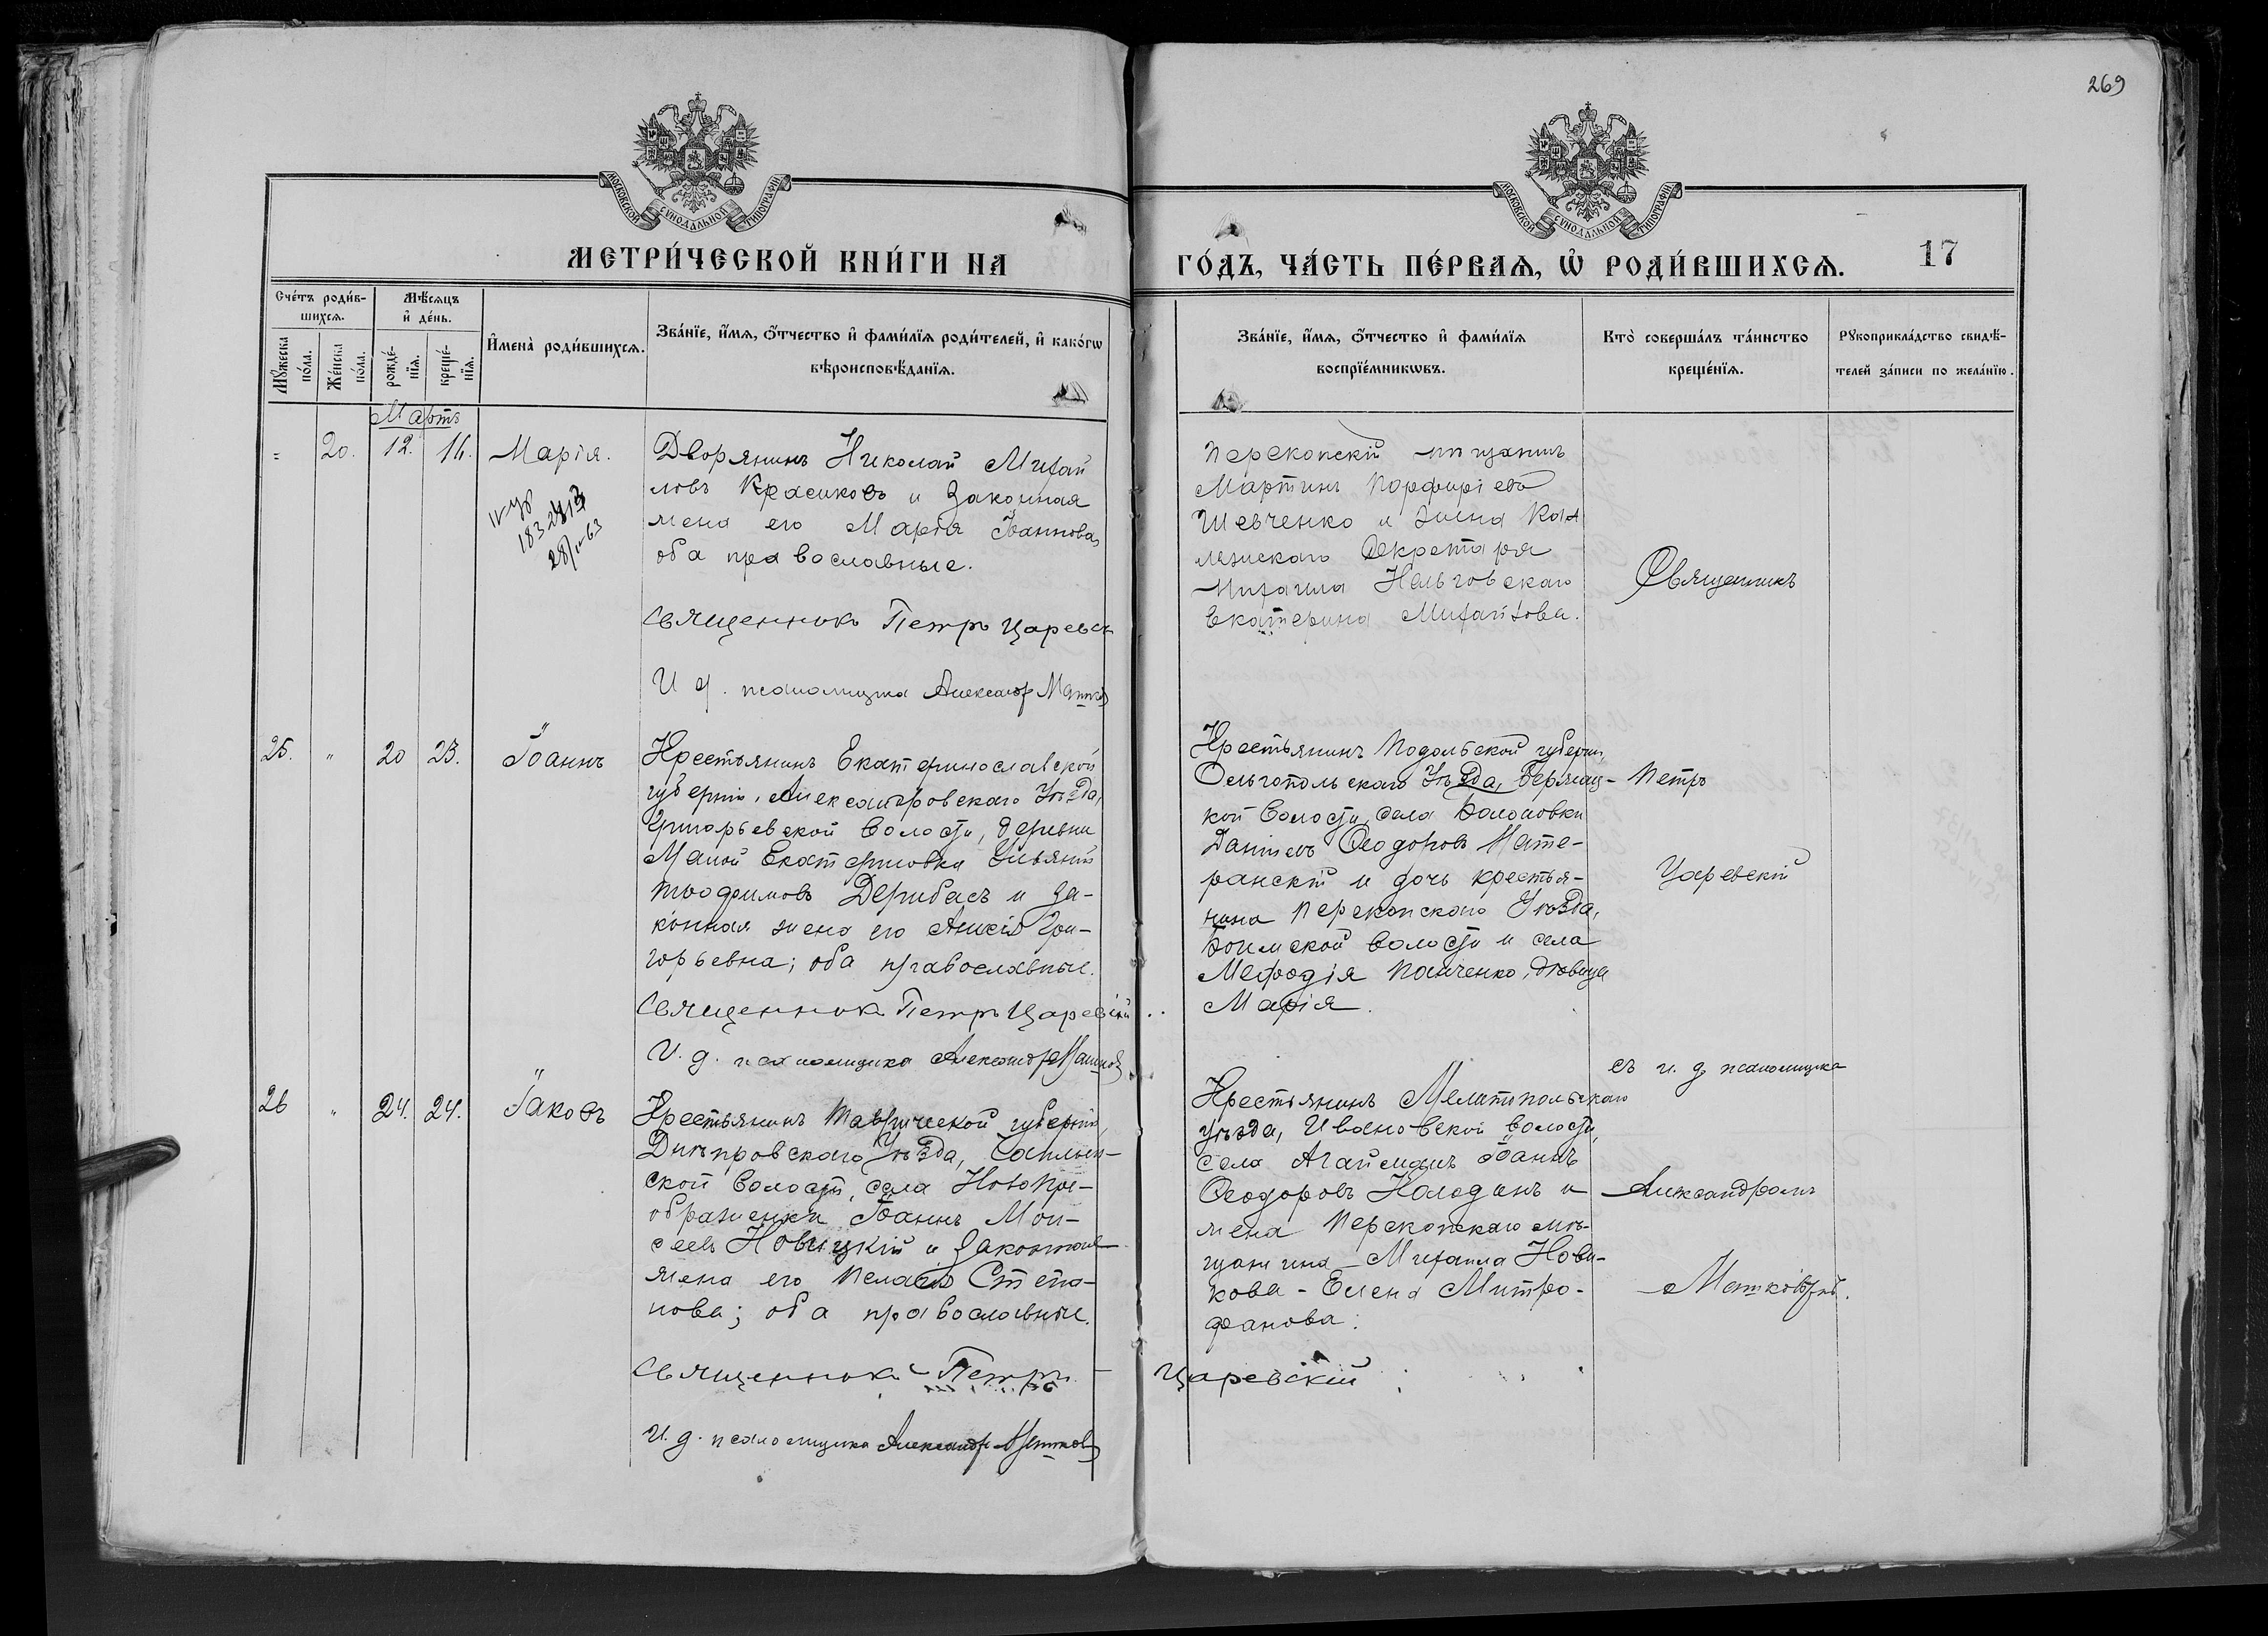 269
МОСКОВСКОЙ СѴНОДАЛЬНОЙ ТИПОГРАФІИ
МОСКОВСКОЙ СѴНОДАЛЬНОЙ ТИПОГРАФІИ
МЕТРИ́ЧЕСКОЙ КНИ́ГИ НА
ГО́ДЪ, ЧА́СТЬ ПЕ́РВАѦ, Ѡ҆ РОДИ́ВШИХСѦ.
17
Сче́тъ роди́в-
шихсѧ.
Мꙋ́жеска по́ла.
Же́нска по́ла.
Мѣ́сѧцъ
и҆ де́нь.
рожде́-
нїѧ.
креще́-
нїѧ.
И҆мена̀ роди́вшихсѧ.
Зва́нїе, и҆́мѧ, ѻ҆́тчество и҆ фами́лїѧ роди́телей, и҆ како́гѡ
вѣроисповѣ́данїѧ.
Зва́нїе, и҆́мѧ, ѻ҆́тчество и҆ фами́лїѧ
воспрїе́мникѡвъ.
Кто̀ соверша́лъ та́инство
креще́нїѧ.
Рꙋкоприкла́дство свидѣ́-
телей за́писи по жела́нїю.
Мартъ
" 20. 12. 16. Марія.
Дворянинъ Николай Михай
ловъ Красиковъ и законная
жена его Марія Іоаннова,
оба православные.
Священникъ Петръ Царевск
И д. псаломщика Александр Матков
Перекопскій мѣщанинъ
Мартинъ Порфиріевъ
Шевченко и жена Кол
лежскаго Секретаря
Михаила
Екатерина Михайлова.
Священникъ
25. " 20 23. Іоаннъ
Крестьянинъ Екатеринославской
губерніи, Александровскаго Уѣзда,
Григорьевской волости, деревни
Малой Екатериновки Ульянъ
Трофимовъ Дерибасъ и за-
конная жена его Анисія Гри-
горьевна; оба православные.
Священникъ Петръ Царевскій
И. д. псаломщика Александр Матков
Крестьянинъ Подольской губерніи,
Ольгопольскаго Уѣзда,
кой волости, села
Даніилъ Ѳеодоровъ Мате-
ранскій и дочь крестья-
нина Перекопскаго Уѣзда,
волости и села
Меѳодія Панченко, дѣвица
Марія.
Петръ
Царевскій
съ и. д. псаломщика
26 " 24. 24. Іаковъ
Крестьянинъ Таврической губерніи,
Днѣпровскаго Уѣзда, Чаплын-
ской волости, села Новопре-
ображенки Іоаннъ Мои-
сеевъ Новицкій и законная
жена его Пелагія Степа-
нова; оба православные.
Священникъ Петръ Царевскій
И. д. псаломщика Александр Матков
Крестьянинъ Мелитопольскаго
уѣзда, Ивановской волости,
села Агайманъ Іоаннъ
Ѳеодоровъ Колодинъ и
жена Перекопскаго мѣ-
щанина Михаила Нови-
кова - Елена Митро-
фанова.
Александромъ
Матковымъ.